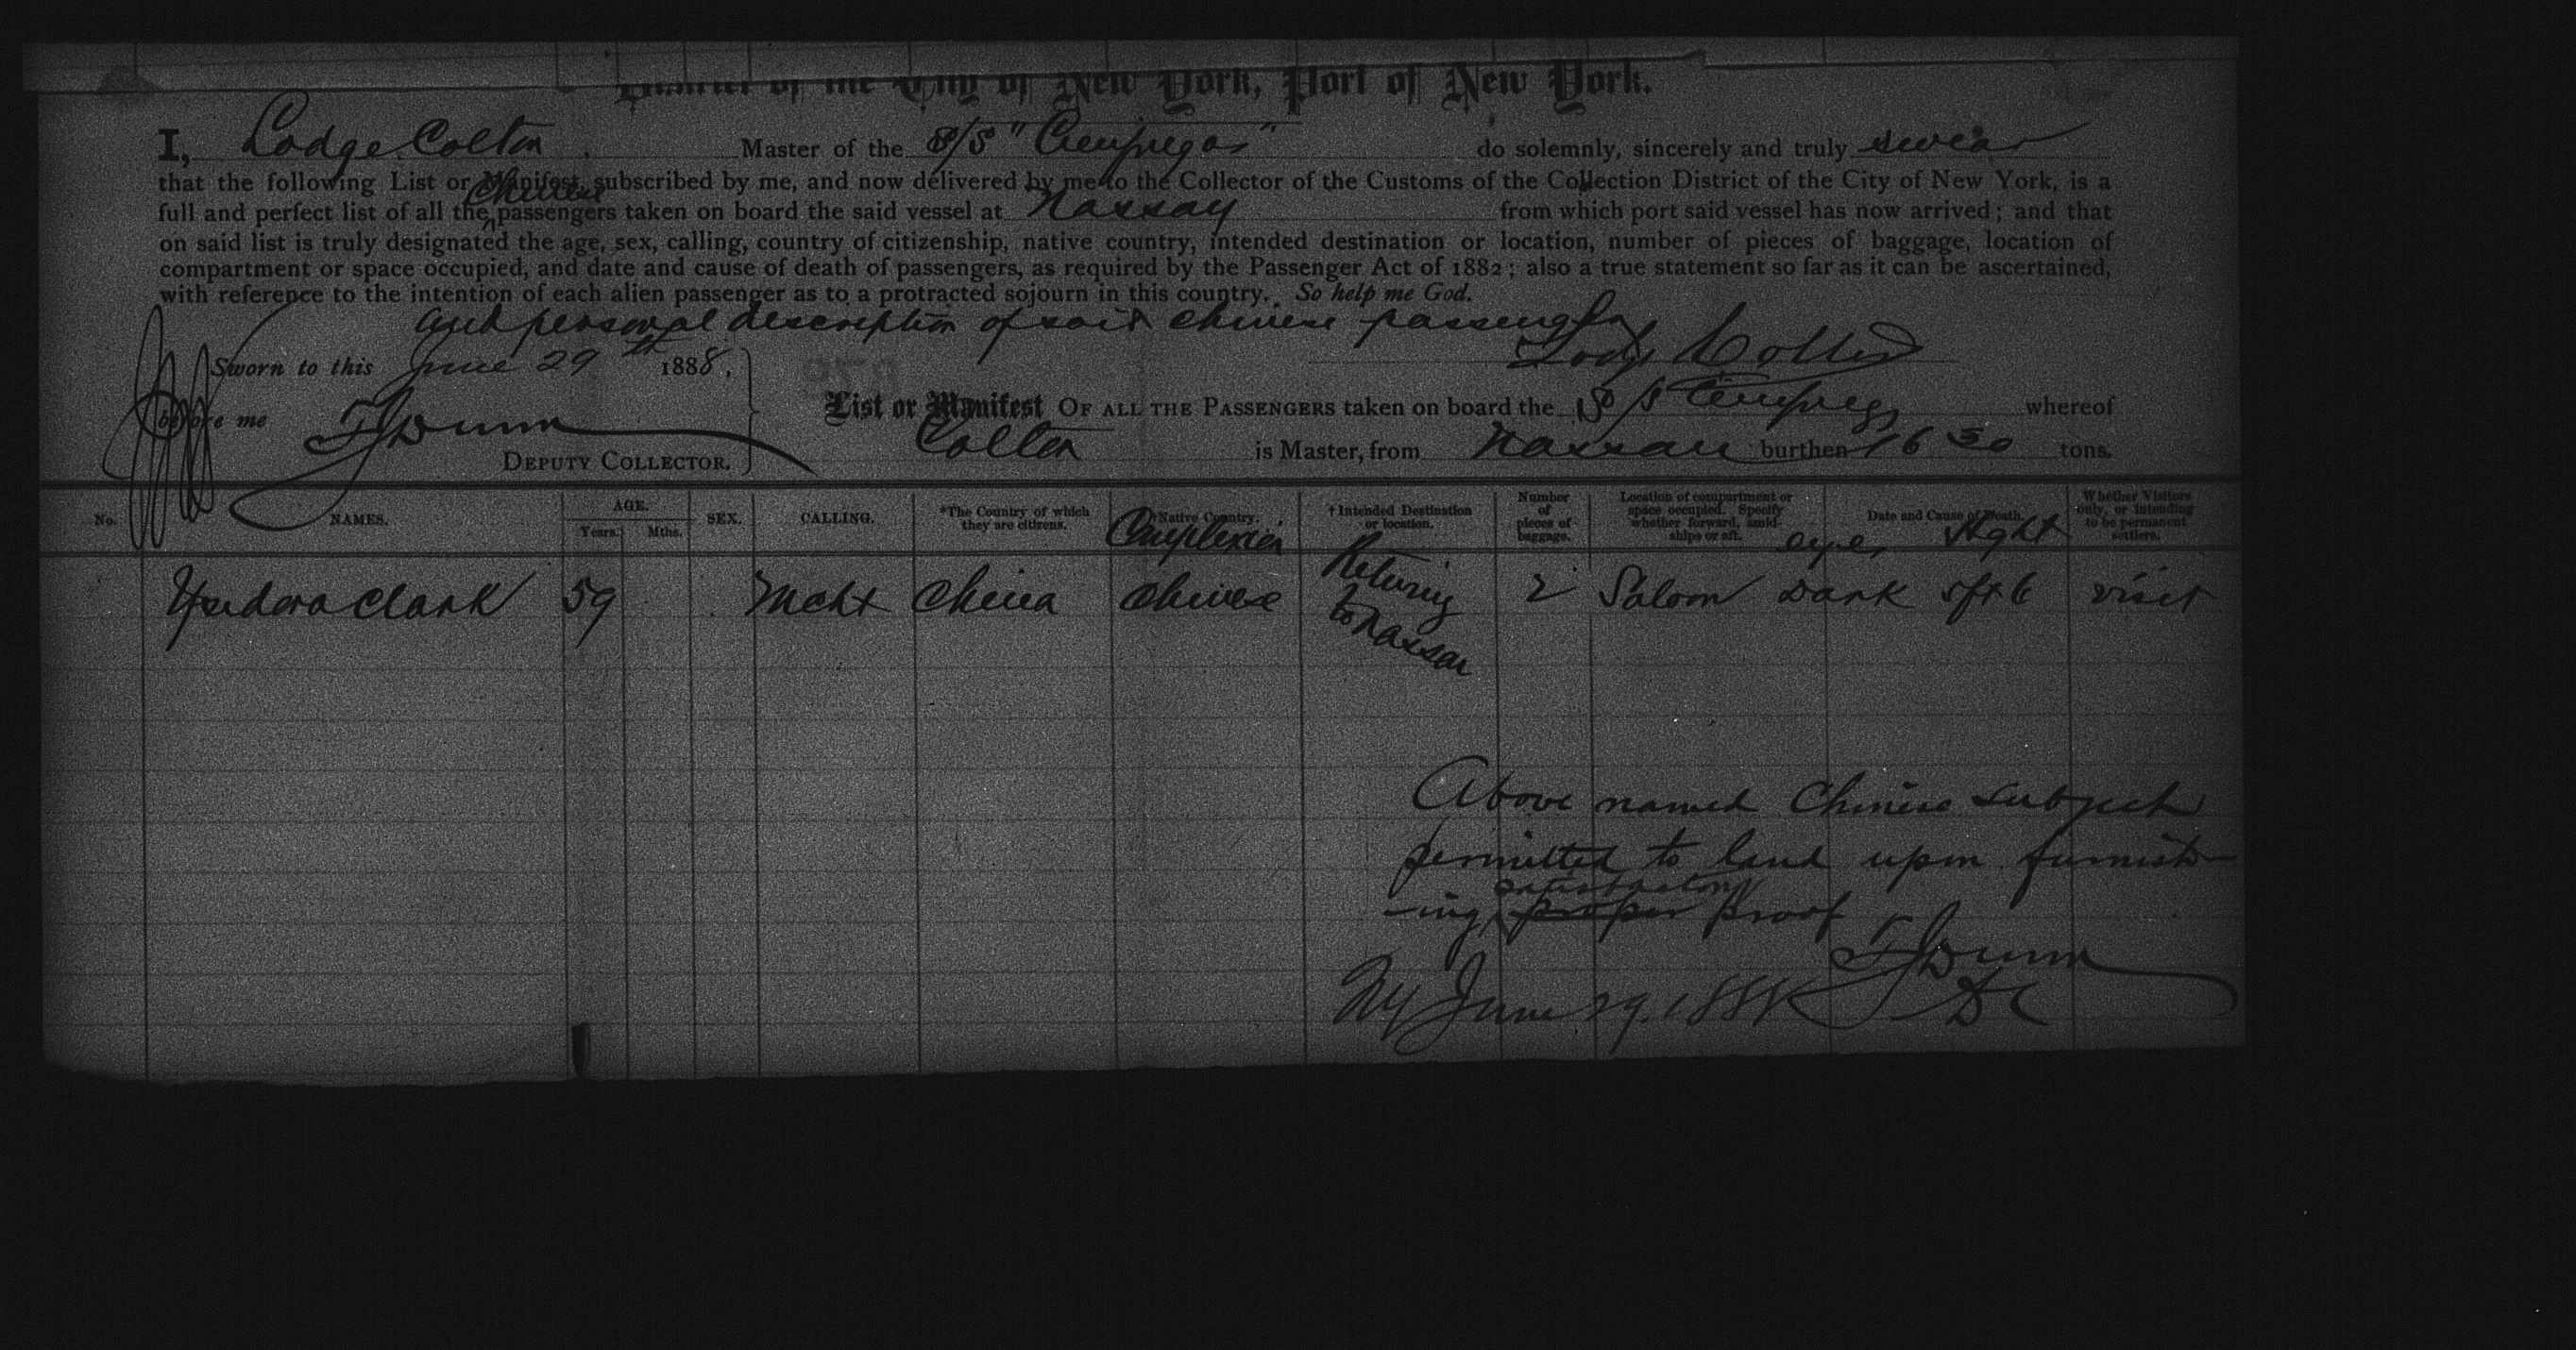 District of the City of New York, Port of New York.
I, Lodge Colton Master of the S/S "Cienfuegos" do solemnly, sincerely and truly swear
that the following List or Manifest, subscribed by me, and now delivered by me to the Collector of the Customs of the Collection District of the City of New York, is a
Chinese
full and perfect list of all the passengers taken on board the said vessel at Nassau from which port said vessel has now arrived; and that
on said list is truly designated the age, sex, calling, country of citizenship, native country, intended destination or location, number of pieces of baggage, location of
compartment or space occupied, and date and cause of death of passengers, as required by the Passenger Act of 1882; also a true statement so far as it can be ascertained,
with reference to the intention of each alien passenger as to a protracted sojourn in this country. So help me God.
and personal description of said Chinese passenger
Sworn to this June 29th 1888,
Lodge Colton
before me TJDunn
DEPUTY COLLECTOR.
List or Manifest OF ALL THE PASSENGERS taken on board the S/S Cienfuegos whereof
Colton is Master, from Nassau burthen 1630 tons.
No. NAMES. AGE. Years. Mths. SEX. CALLING. *The Country of which they are citizens. †Native Country. †Intended Destination or location. Number of pieces of baggage. Location of compartment or space occupied. Specify whether forward, amidships or aft. Date and Cause of Death. Whether Visitors only, or intending to be permanent settlers.
Complexion eyes Hght
Clark 59 Mcht China Chinese Returning to Nassau 2 Saloon Dark 5ft 6 visit
Above named Chinese subject
permitted to land upon furnish-
satisfactory
-ing proper proof
TJDunn
NY June 29. 1888 DC